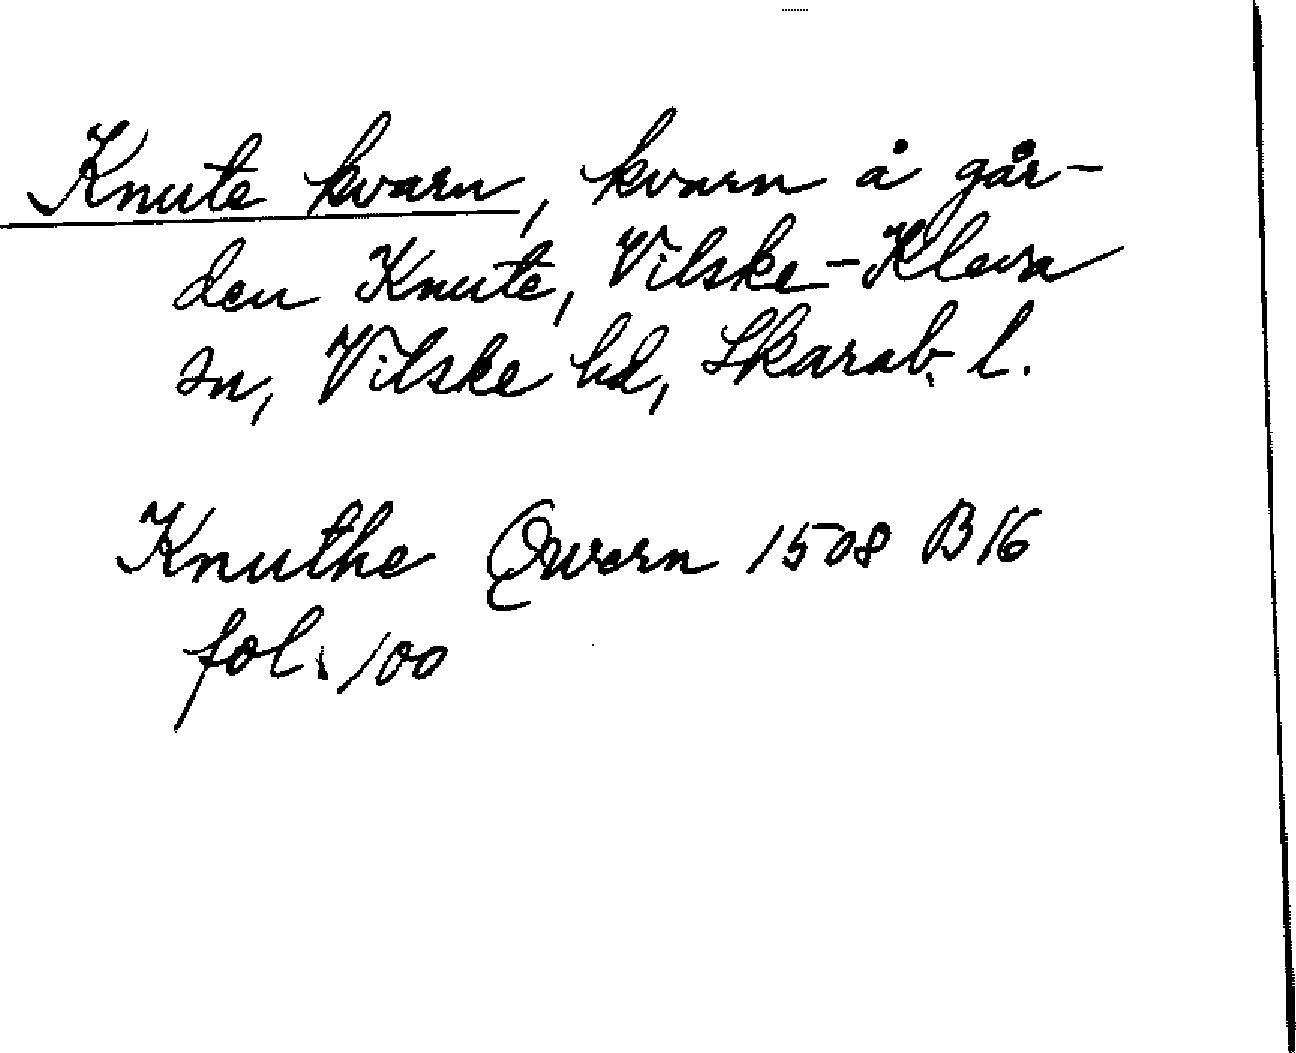 Knute kvarn, kvarn å går-
den Knute, Vilske-Kleva
sn, Vilske hd, Skarab. l.
Knuthe Qwern 1508 B16
fol. 100